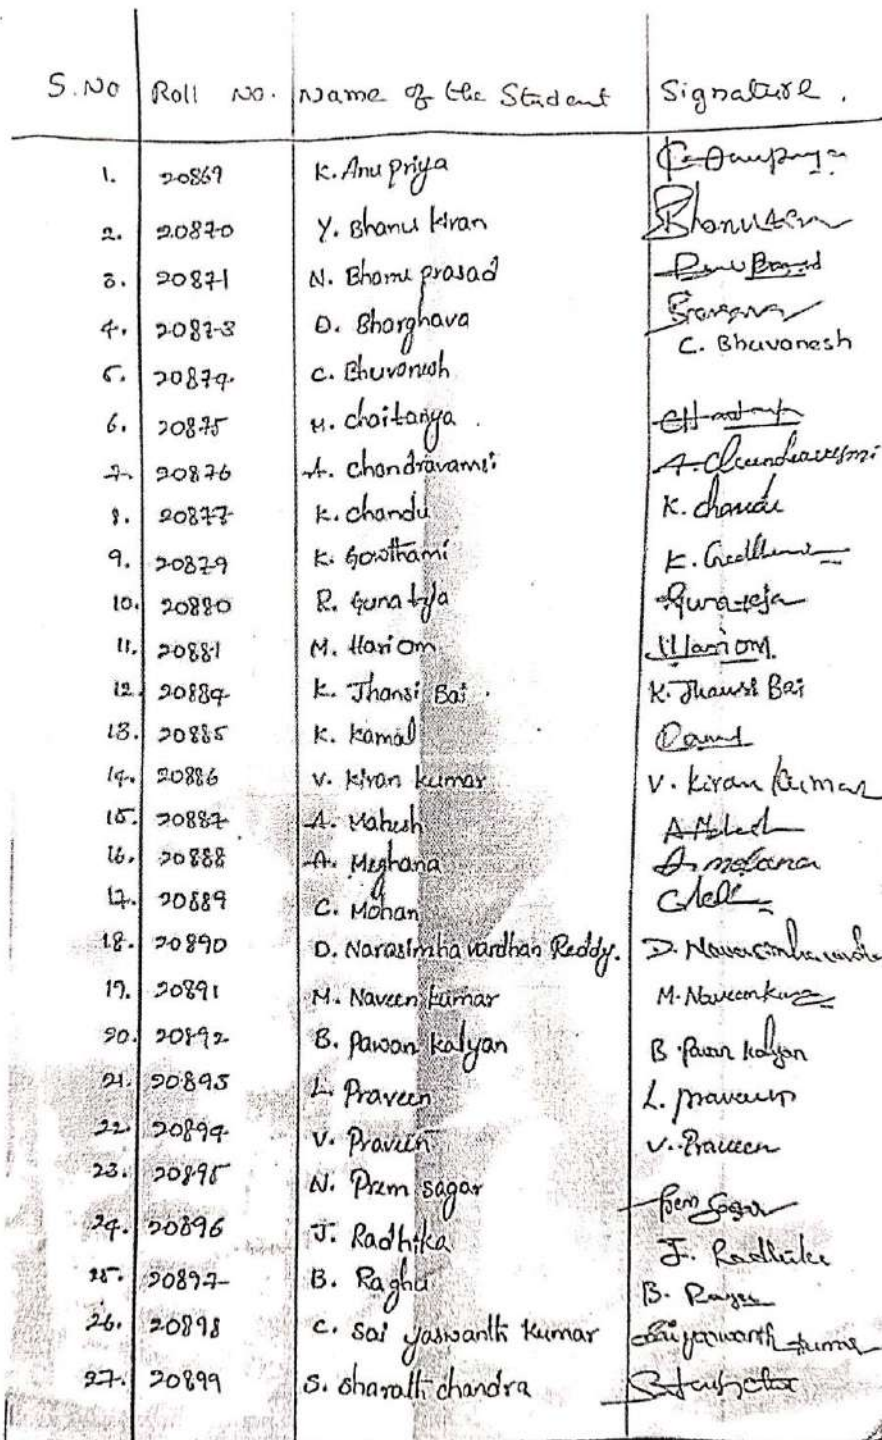 S.No Roll No. Name of the Student Signature.
1. 20869 K. Anu priya
2. 20870 Y. Bhanu kiran Bhanu kiran
3. 20871 N. Bhanu prasad
4. 20873 D. Bharghava
5. 20874 C. Bhuvanesh C. Bhuvanesh
6. 20875 M. chaitanya
7. 20876 A. Chandravamsi A. Chandravamsi
8. 20877 K. chandu K. chandu
9. 20879 K. Gowthami
10. 20880 R. Guna teja Gunateja
11. 20881 M. Hari om Hari om.
12. 20884 K. Jhansi Bai. K. Jhansi Bai
13. 20885 K. Kamal
14. 20886 V. Kiran kumar V. Kiran Kumar
15. 20887 A. Mahesh A Mahesh
16. 20888 A. Meghana
17. 20889 C. Mohan
18. 20890 D. Narasimha vardhan Reddy.
19. 20891 M. Naveen kumar M. Naveen kumar
20. 20892 B. Pawan kalyan B. Pavan kalyan
21. 20893 L. Praveen L. praveen
22. 20894 V. Praveen V. Praveen
23. 20895 N. Prem sagar Prem Sagar
24. 20896 J. Radhika J. Radhika
25. 20897 B. Raghu
26. 20898 C. Sai yaswanth kumar Sai yaswanth kumar
27. 20899 S. sharath chandra